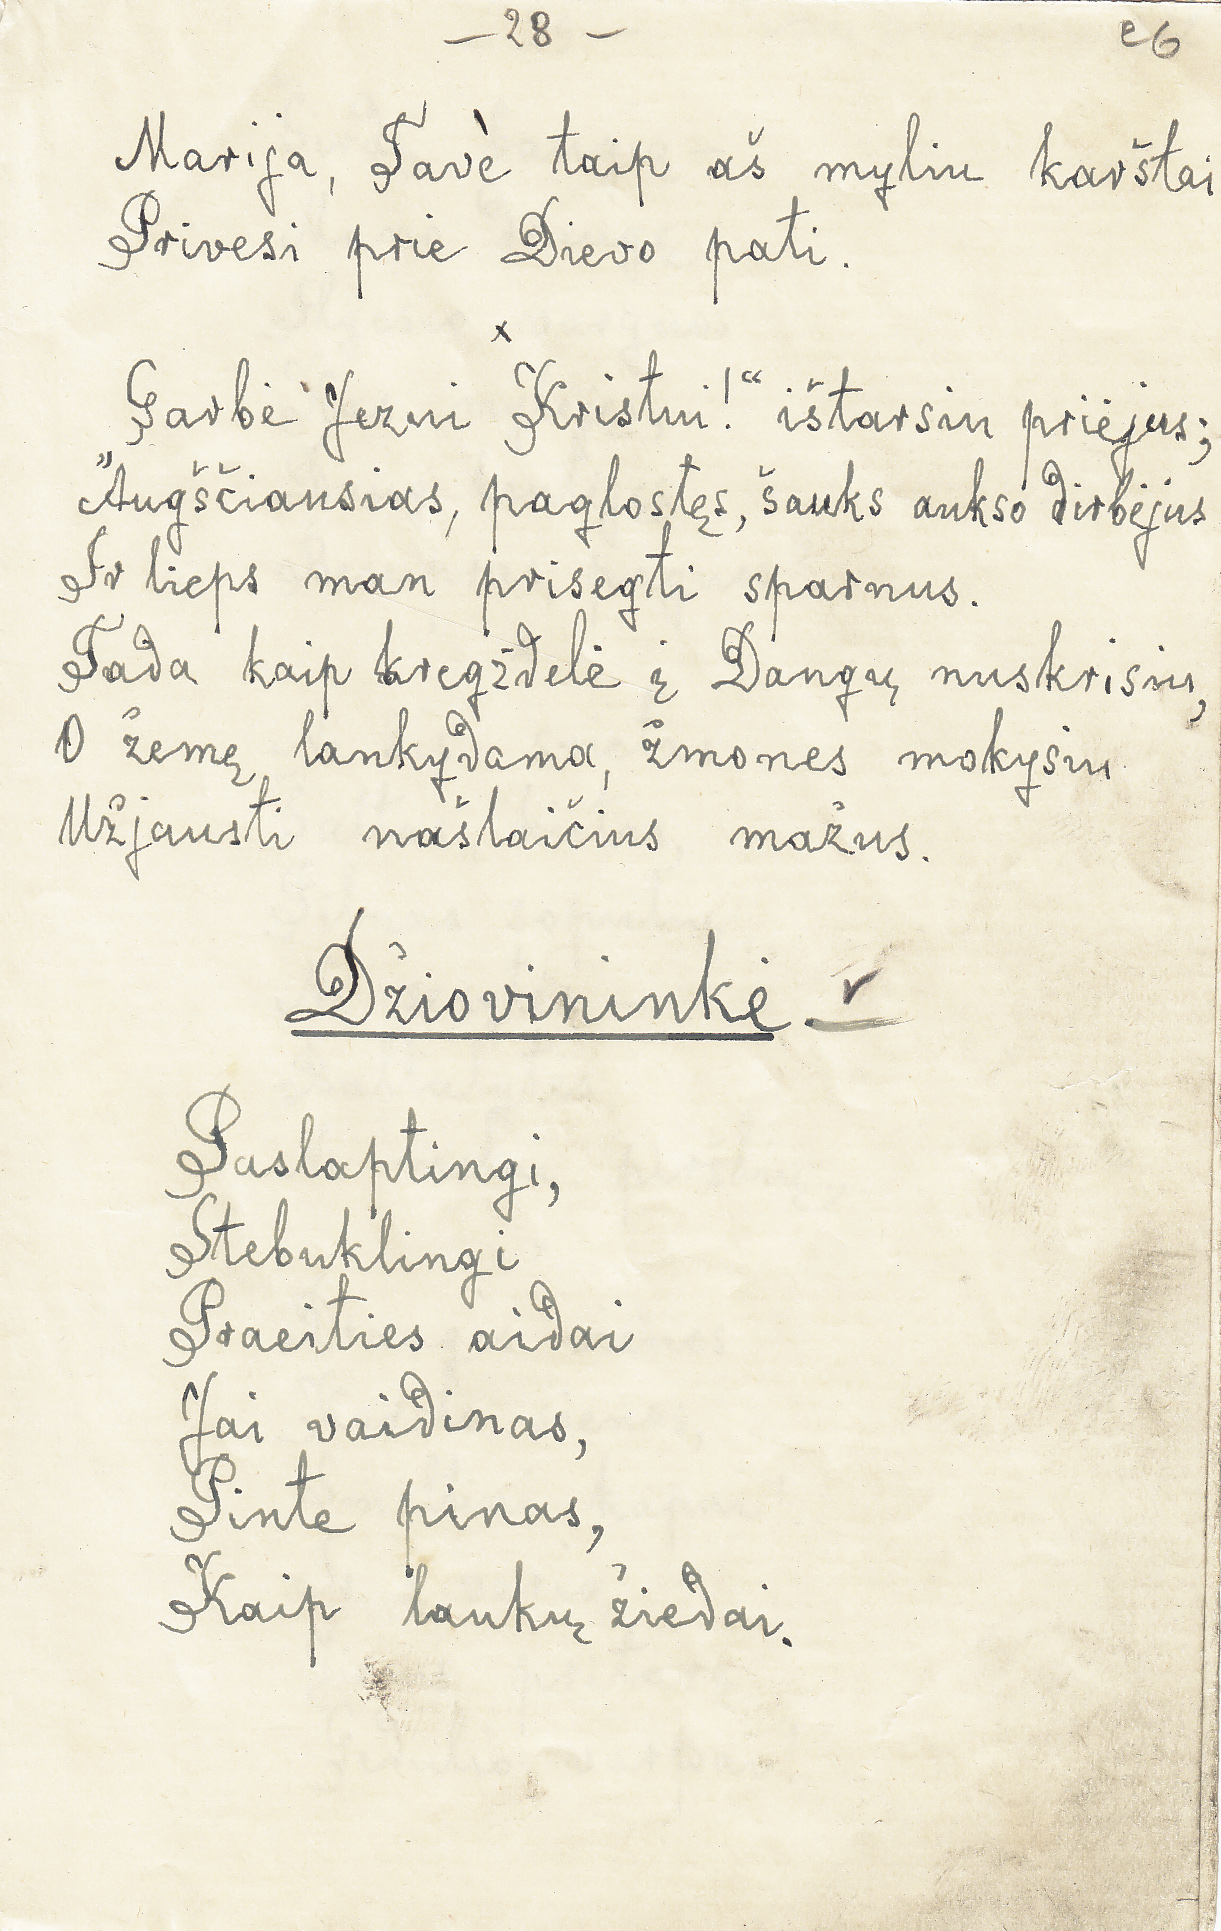 — 28 —
26
Marija, Tavè taip aš myliu karštai
Privesi prie Dievo pati.
x
Garbė Jezui Kristui!“ ištarsiu priėjus;
„Augščiausias, paglostęs, šauks aukso dirbėjus
Ir lieps man prisegti sparnus.
Tada kaip kregždelė į Dangų nuskrisiu,
O žemę lankydama, žmones mokysiu
Užjausti našlaičius mažus.
Džiovininkė.
Paslaptingi,
Stebuklingi
Praeities aidai
Jai vaidinas,
Pinte pinas,
Kaip laukų žiedai.